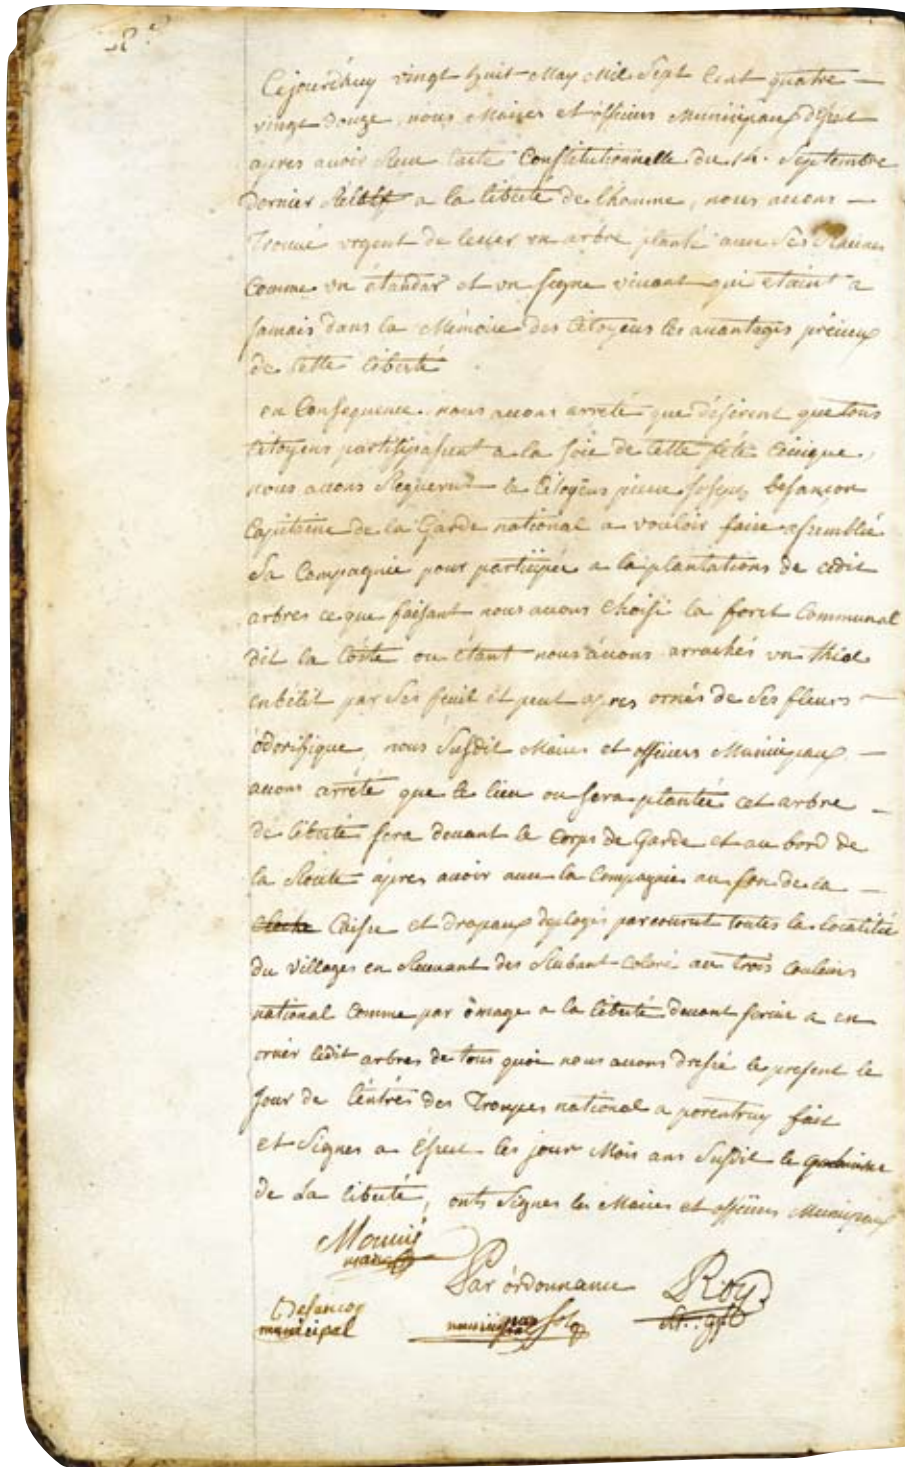 Cejourd'huy vingt huit May Mil Sept Cent quatre —
vingt Douze, nous Maires et officiers Municipaux
apres avoir Leu l'acte Constitutionnelle du 14. Septembre
dernier Rélatif a la liberté de l'homme, nous avons —
Trouvé urgent de lever un arbre planté avec Ses Racines
Comme un étandar et un signe vivant qui a
jamais dans la Mémoire des Citoyens les avantages précieux
de cette liberté
en Consequence. nous avons arreté que désirent que tous
Citoyens a la joie de cette fête civique,
nous avons Requerut le Citoyens pierre Joseph besançon
Capitaine de la Garde national a vouloir faire assemblé
Sa Compagnie pour participer a la plantations de cedit
arbres ce que faisant nous avons choisi la foret Communal
dit la Côste ou étant nous avons arrachés un thiel
enbélit par Ses feuil et peut apres ornés de Ses fleurs —
ôdorifique, nous Susdit Maires et officiers Municipaux —
avons arrêté que le lieu ou sera plantée cet arbre —
de liberté sera devant le Corps de Garde et au bord de
la Route apres avoir avec la Compagnie au son de la —
Cloche Caisse et drapaux parcourut toutes la localitée
du villages en Recevant des Rubant Coloré au trois Couleurs
national Comme par ômage a la liberté devant servir a en
ornér ledit arbres de tous quoi nous avons dressé le present le
Jour de l'éntrés des Troupes national a porentruy fait
et Signes a les jour Mois ans Susdit le
de La liberté, onts Signes les Maires et officiers Municipaux
maire
Par ôrdonnance Roy
Besançon
municipal municipal